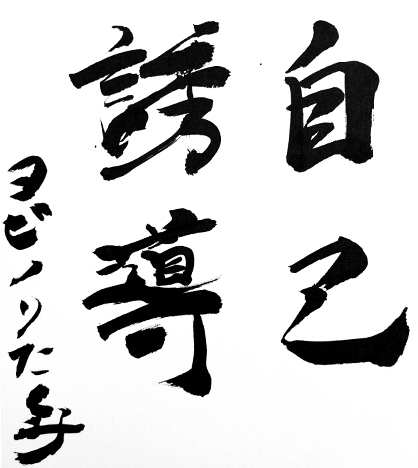 自己
誘導
ヨビノリたくみ